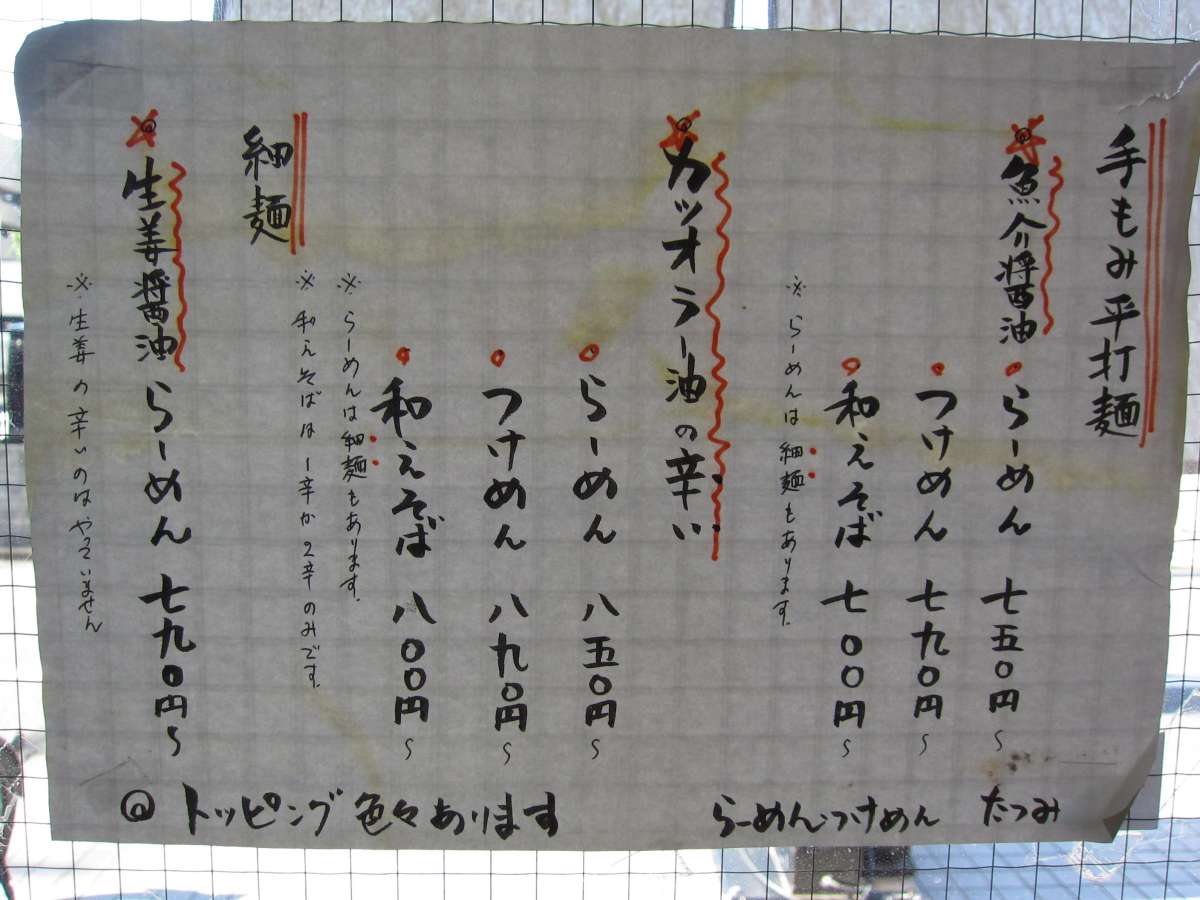 手もみ平打麺
魚介醤油
らーめん 七五〇円〜
つけめん 七九〇円〜
和えそば 七〇〇円〜
※らーめんは細麺もあります。
カツオラー油の辛い
らーめん 八五〇円〜
つけめん 八九〇円〜
和えそば 八〇〇円〜
※らーめんは細麺もあります。
※和えそばは1辛か2辛のみです。
細麺
生姜醤油らーめん 七九〇円〜
※生姜の辛いのはやっていません
トッピング色々あります
らーめん・つけめん たつみ